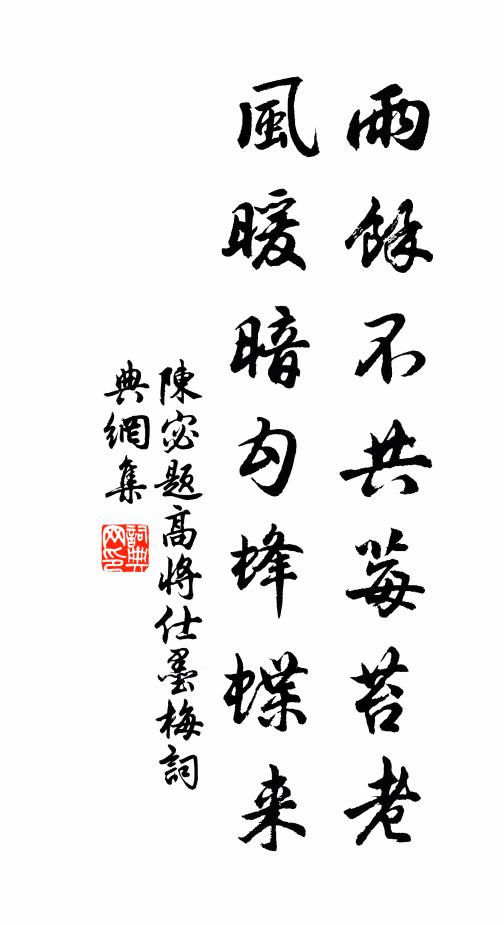 雨餘不共莓苔老
風暖暗勾蜂蝶来
陳宓題高將仕墨梅詞
典網集
詞典網印